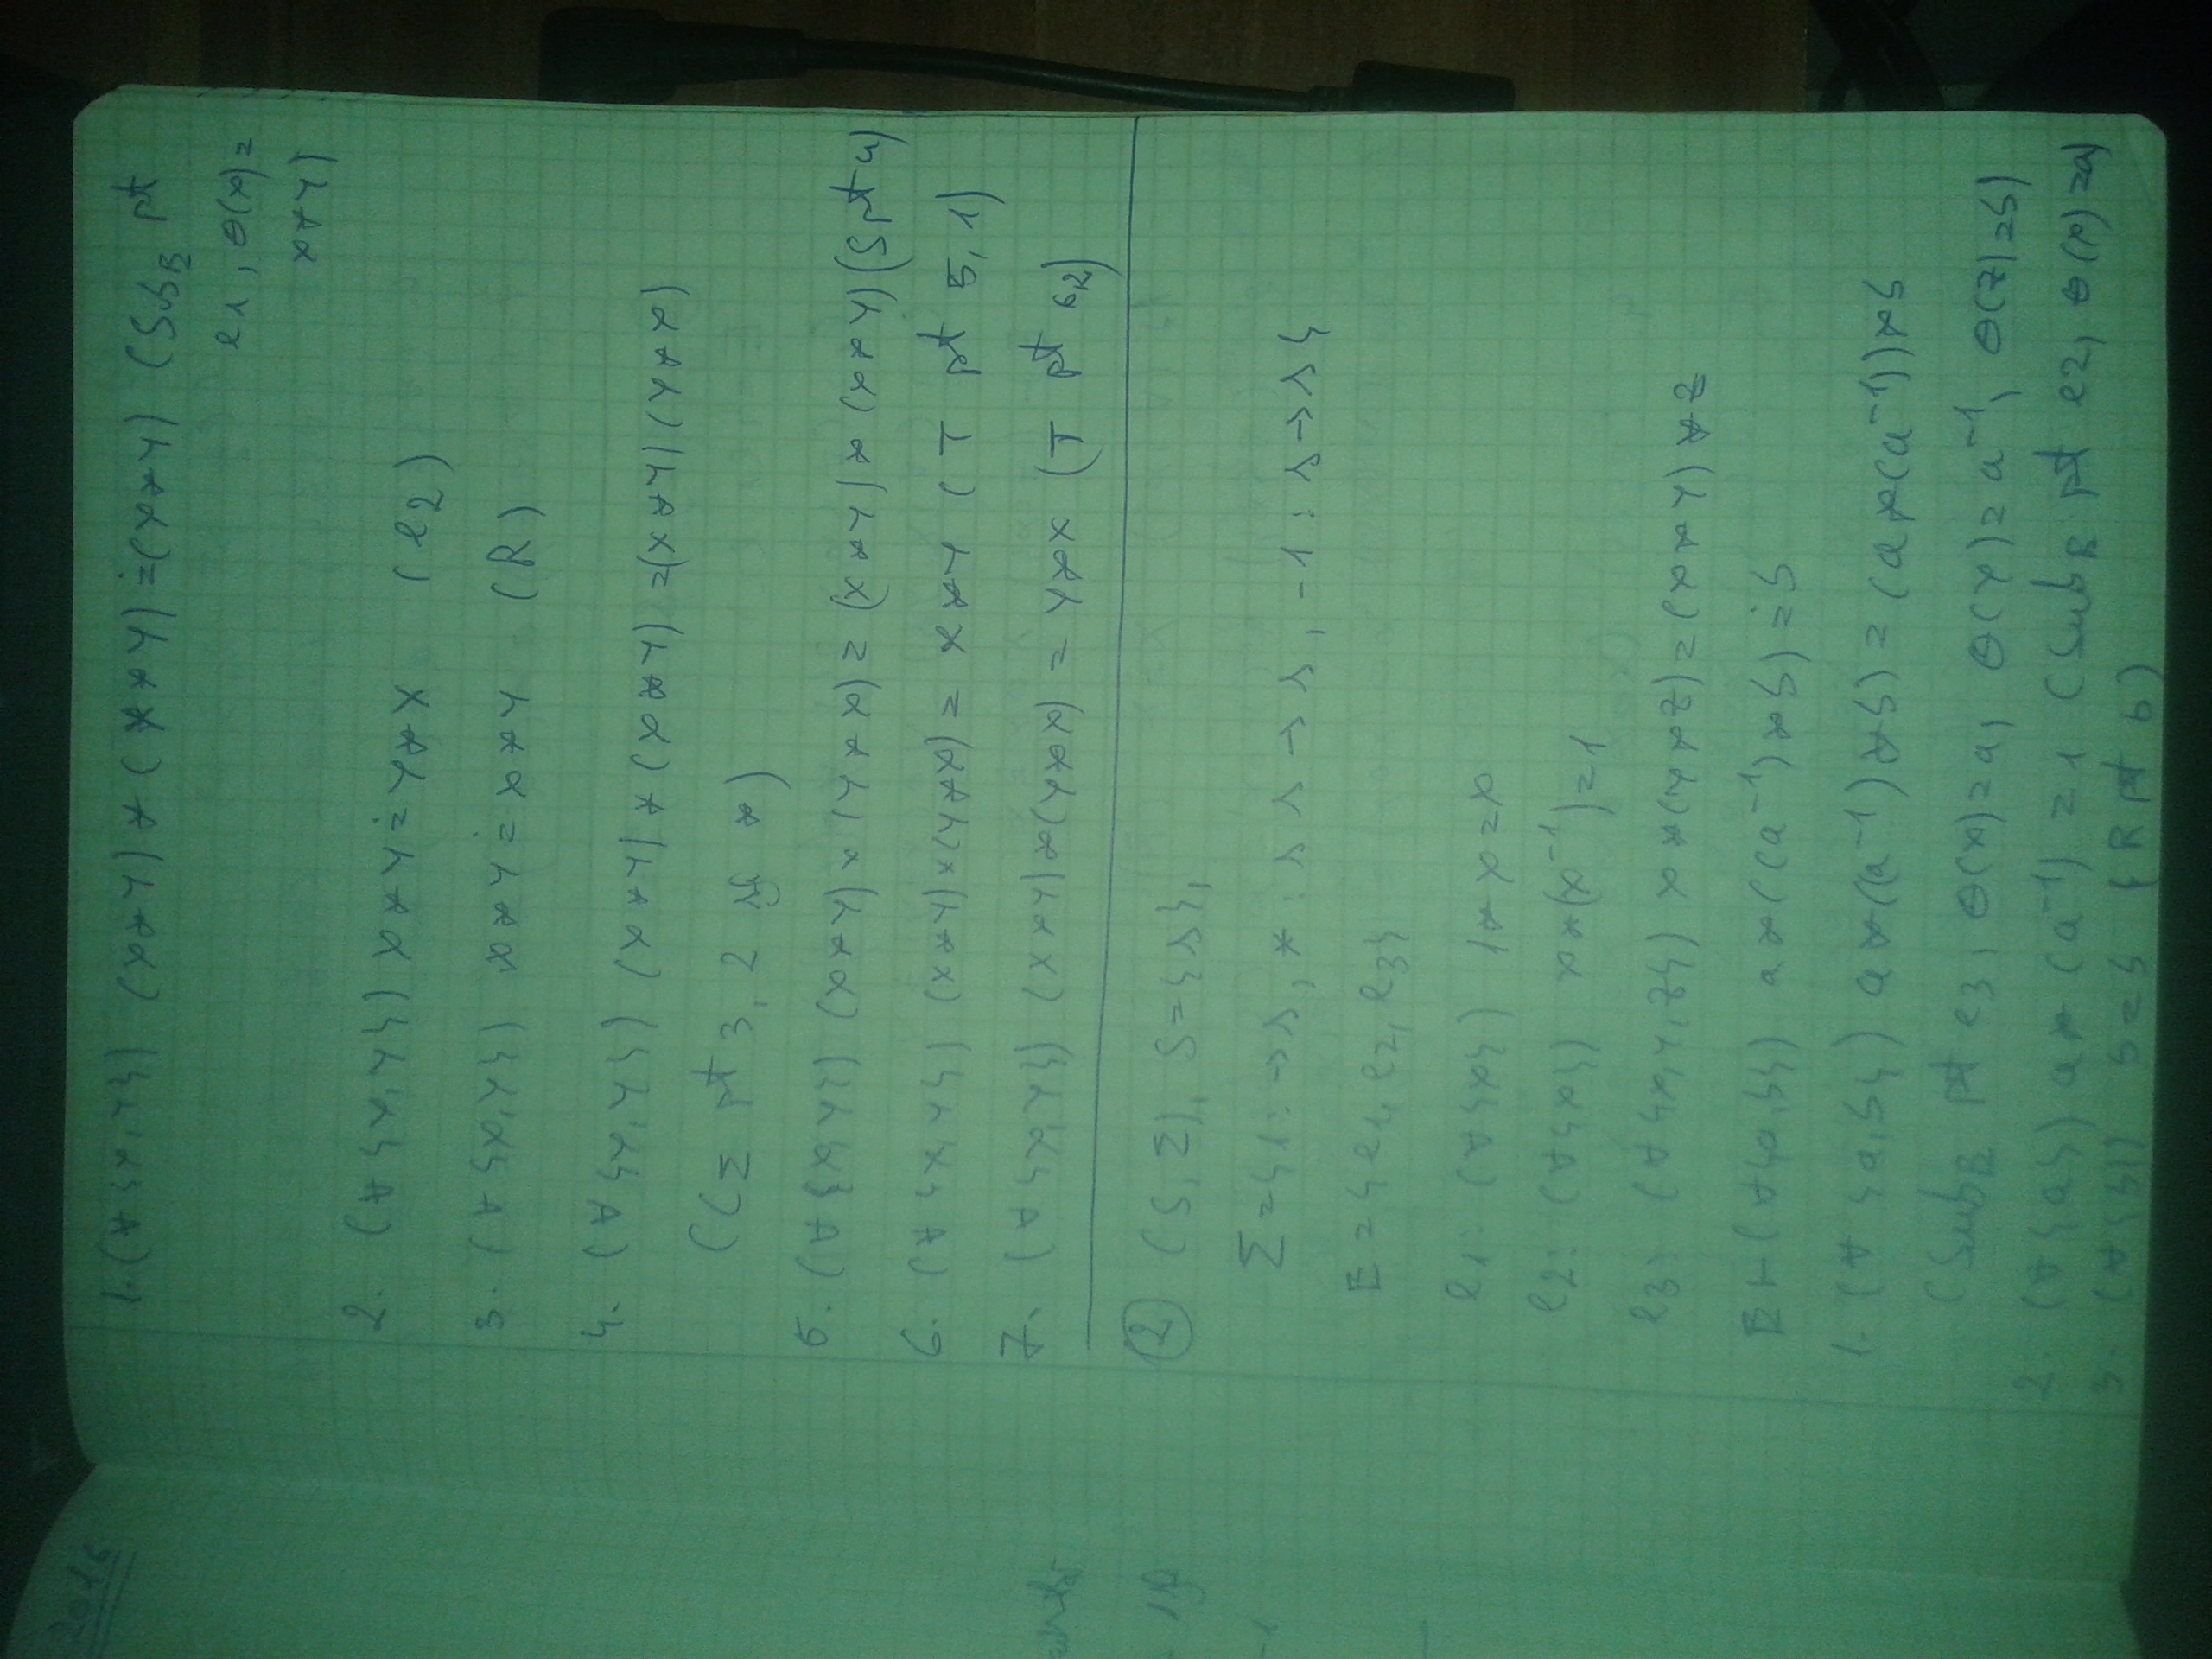 2016
1. (∀{x,y}) (x*y) * (x*y) ≐ (x*y) (Sub_E pt
e1, θ(x) =
x*y)
2. (∀{x,y}) x*y ≐ y*x (e2)
3. (∀{x,y}) x*y ≐ x*y (R)
4. (∀{x,y}) (x*y) * (x*y) = (x*y)(y*x)
(CΣ pt 3, 2 și *)
5. (∀{x,y}) (x*y) * (y*x) = (x*y) * (x*y) (S pt 4)
6. (∀{x,y}) (x*y)*(y*x) = x*y (T pt 5, 1)
7. (∀{x,y}) (x*y)*(y*x) = y*x (T pt 6,2)
② (S, Σ), S={s},
Σ={1: →s, *: s s → s, -1: s→s}
E = {e1, e2, e3}
e1: (∀{x}) 1*x=x
e2: (∀{x}) x*(x⁻¹)=1
e3: (∀{x,y,z}) x*(y*z)=(x*y)*z
E ⊢ (∀{a,b}) a*((a⁻¹)*b) ≐ b
1. (∀{a,b}) a*((a⁻¹)*b) = (a*(a⁻¹))*b
(Sub_E pt e3, θ(x)=a, θ(y)=a⁻¹, θ(z)=b)
2. (∀{a}) a*(a⁻¹) = 1 (Sub_E pt e2, θ(x)=a)
3. (∀{b}) b=b (R pt b)